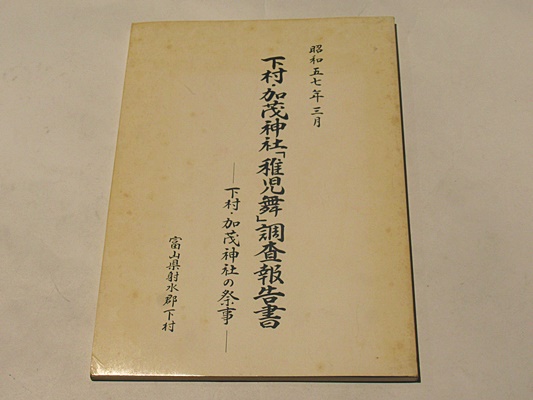 昭和五七年三月
下村・加茂神社「稚児舞」調査報告書
―下村・加茂神社の祭事―
富山県射水郡下村